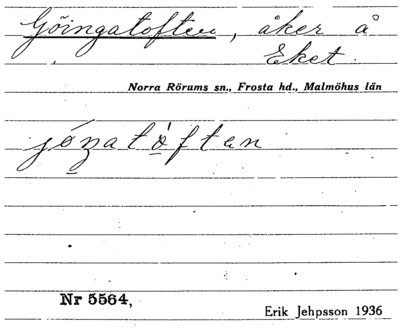 Göingatoften, åker å
Eket.
Norra Rörums sn., Frosta hd., Malmöhus län
Nr 5564,
Erik Jehpsson 1936